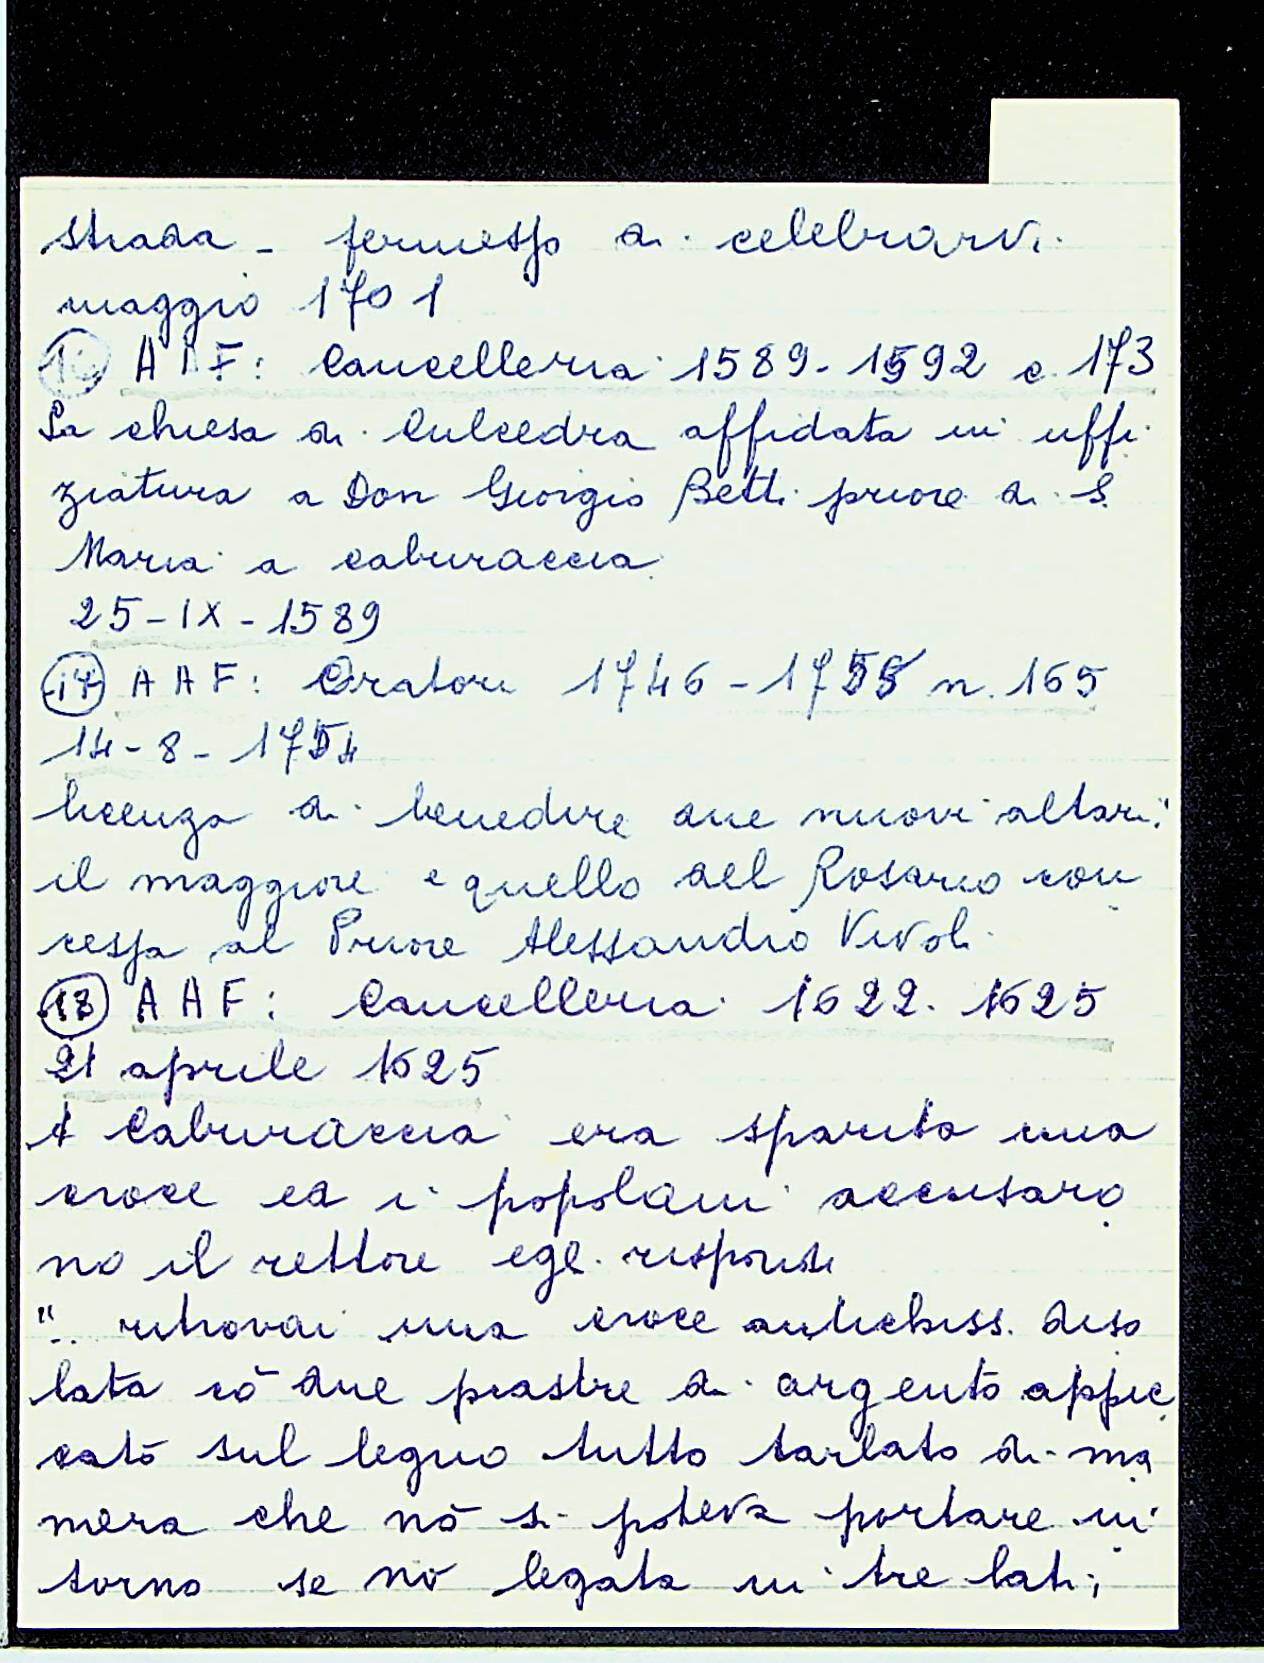 strada - permesso di celebrarvi
maggio 1701
(16) AAF: Cancelleria 1589-1592 c 173
La chiesa di Culcedra affidata in uffi
ziatura a Don Giorgio Betti priore di S.
Maria a caburaccia
25-IX-1589
(17) AAF: Oratori 1746-1755 n. 165
14-8-1754
licenza di benedire due nuovi altari:
il maggiore e quello del Rosario con
cessa al Priore Alessandro Vivoli
(18) AAF: Cancelleria 1622. 1625
21 aprile 1625
A Caburaccia era sparita una
croce ed i popolani accusaro
no il rettore egli rispondi
".. ritrovai una croce antichiss. diso
lata cõ due piastre di argento appic
catō sul legno tutto tarlato di ma
niera che nõ si poteva portare in
torno se nõ legata in tre lati;